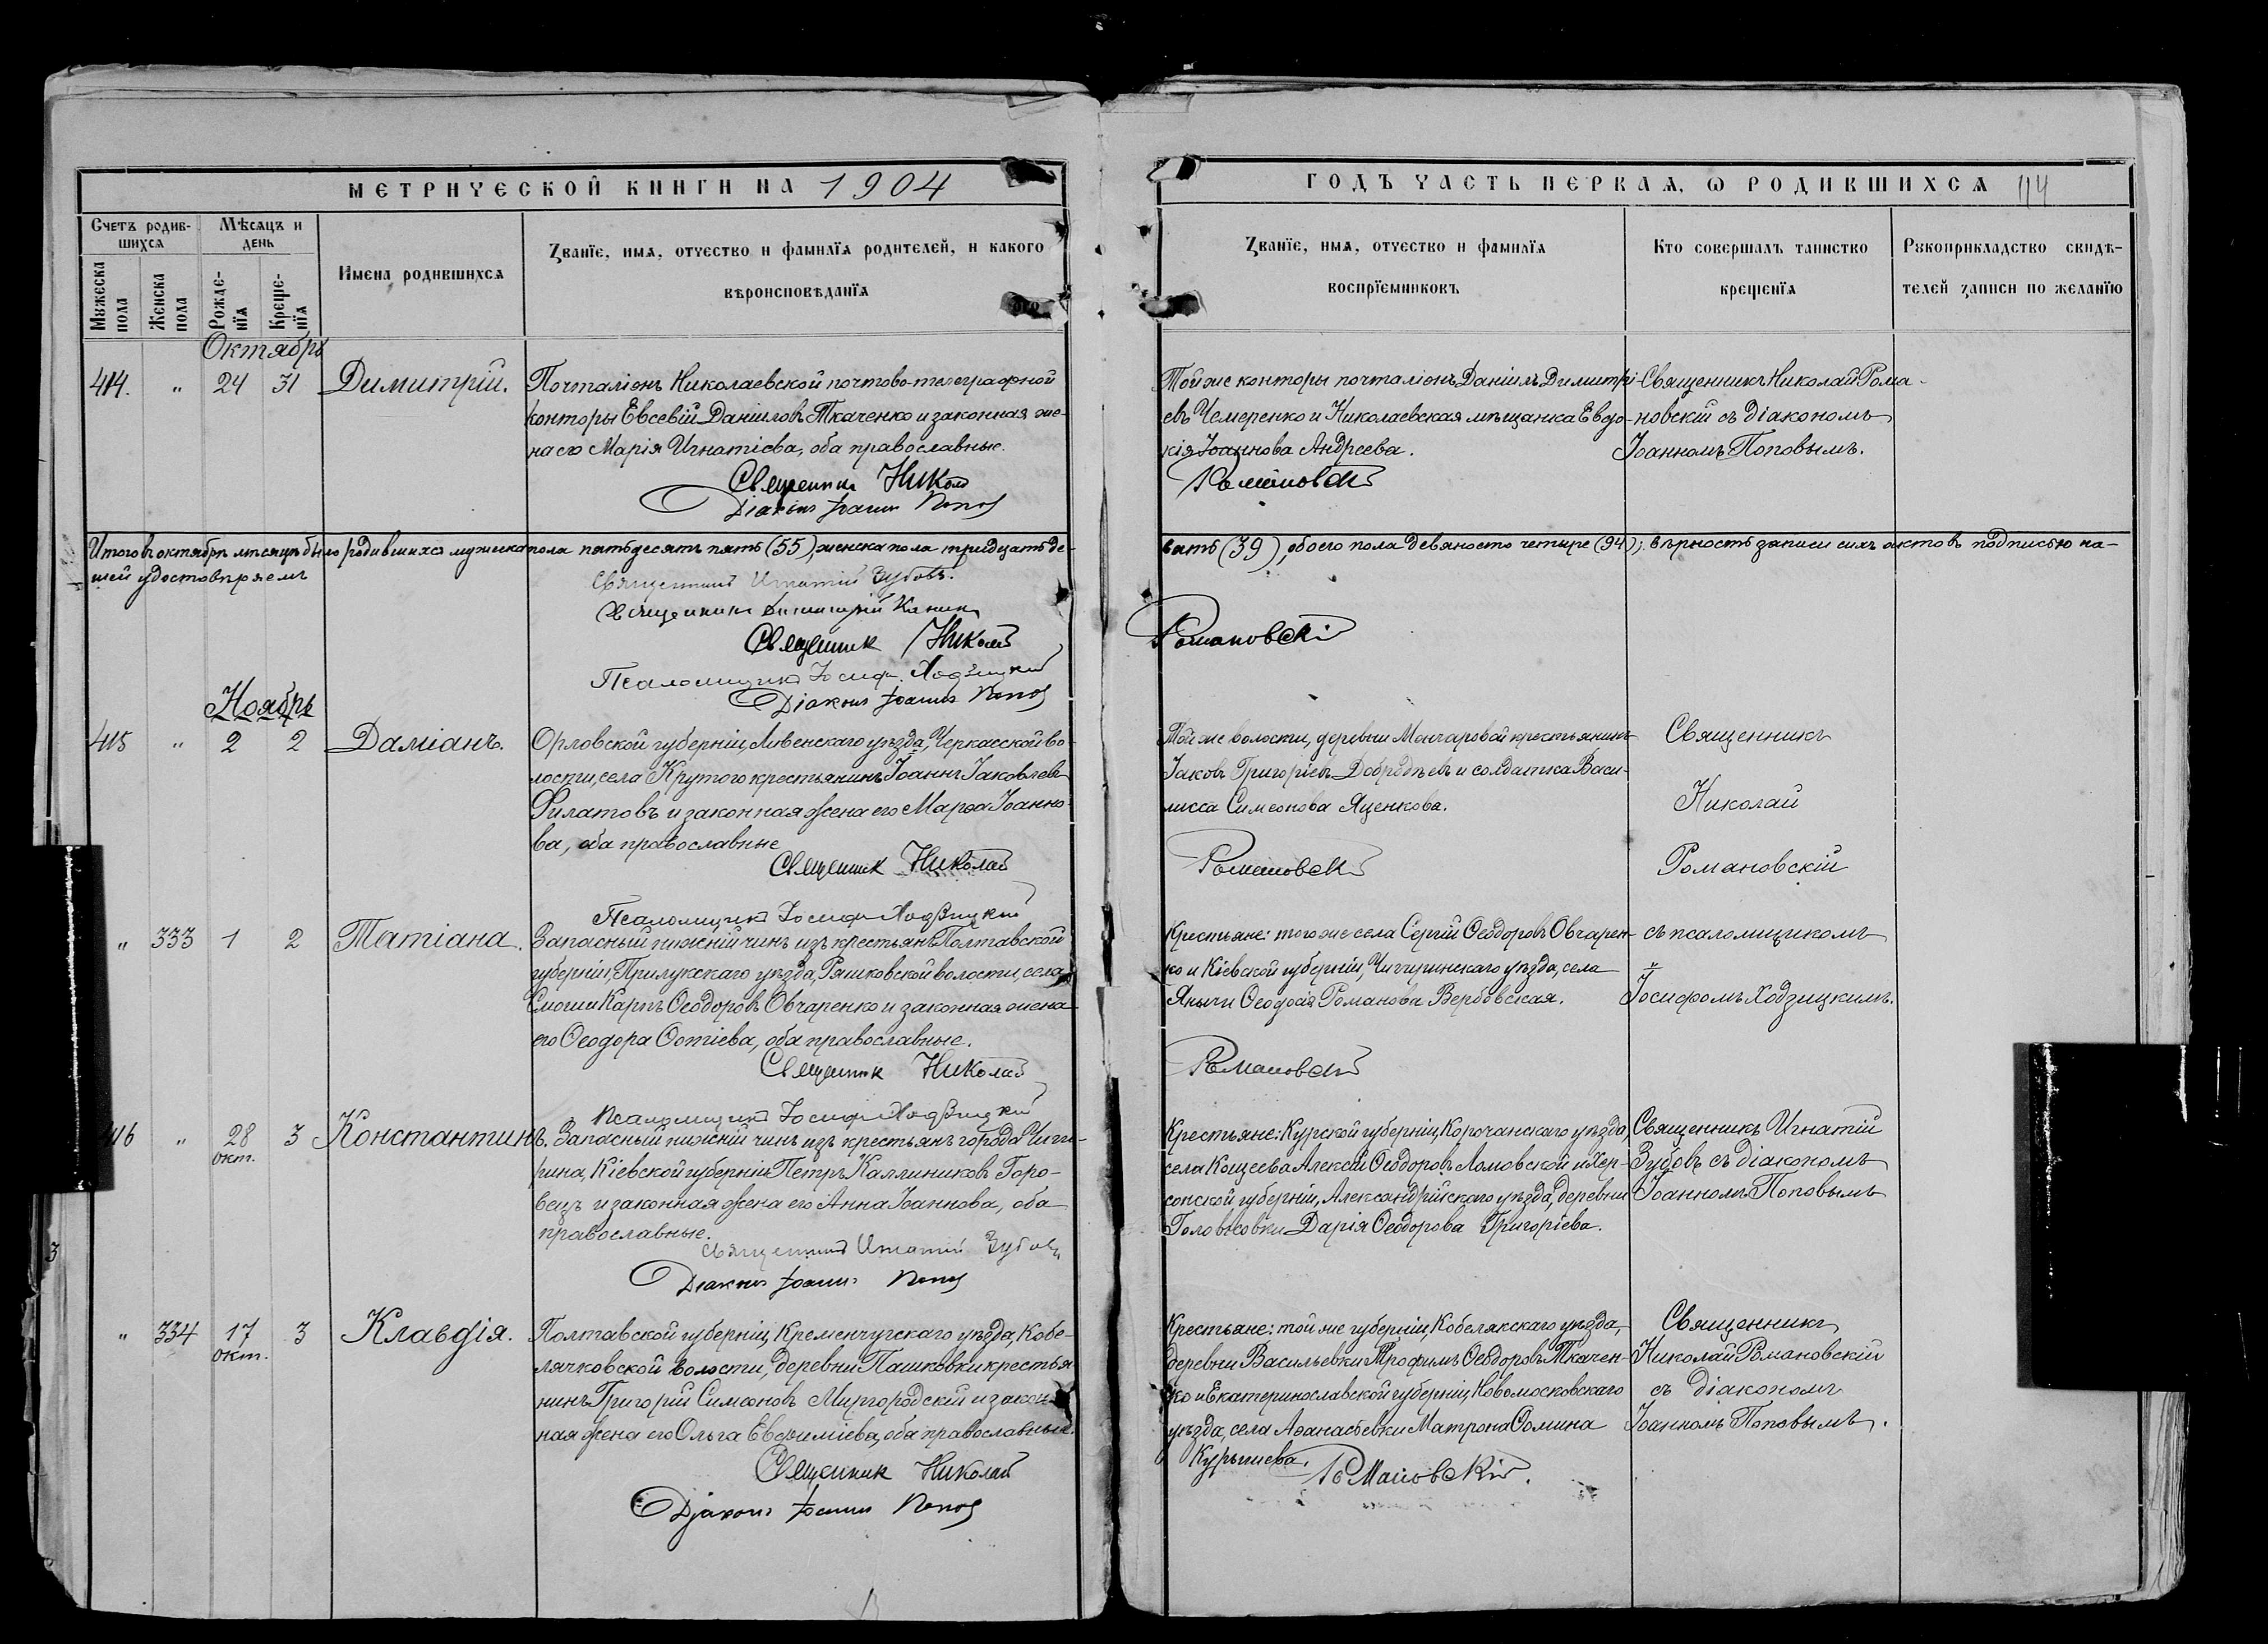 МЕТРИЧЕСКОЙ КНИГИ НА 1904
Счетъ родив-
шихся
Мѣсяцъ и
день
Мужеска
пола
Женска
пола
Рожде-
нїя
Креще-
нїя
Имена родившихся
Званїе, имя, отчество и фамилїя родителей, и какого
вѣроисповѣданїя
Октябрь
414. " 24 31 Димитрій.
Почталіонъ Николаевской почтово-телеграфной
конторы Евсевій Даніиловъ Ткаченко и законная же-
на его Марія Игнатіева, оба православные.
Священникъ Николай
Діаконъ Іоаннъ Попов
Итого въ октябрѣ мѣсяцѣ было родившихся мужеска пола пятьдесятъ пять (55), женска пола тридцать де-
шей удостовѣряемъ
Священникъ Игнатій Зубовъ.
Священникъ Димитрій
Священник Николай
Псаломщикъ Іосифъ Ходзицкій
Діаконъ Іоаннъ Попов
Ноябрь
415 " 2 2 Даміанъ.
Орловской губерніи, Ливенскаго уѣзда, Черкасской во-
лости, села Крутого крестьянинъ Іоаннъ Іаковлевъ
Филатовъ и законная жена его Марѳа Іоанно-
ва, оба православные
Священник Николай
Псаломщикъ Іосифъ Ходзицкій
" 333 1 2 Татіана.
Запасный нижній чинъ изъ крестьянъ Полтавской
губерніи, Прилукскаго уѣзда, Ряшковской волости, села
Смоши Карпъ Ѳеодоровъ Овчаренко и законная жена
его Ѳеодора Ѳотіева, оба православные.
Священник Николай
Псаломщикъ Іосифъ Ходзицкій
416 " 28 3 Константинъ.
окт.
Запасный нижній чинъ изъ крестьянъ города Чиги-
рина, Кіевской губерніи Петръ Каллиниковъ Горо-
вецъ и законная жена его Анна Іоаннова, оба
православные.
Священникъ Игнатій Зубовъ
Діаконъ Іоаннъ Попов
" 334 17 3 Клавдія.
окт.
Полтавской губерніи, Кременчугскаго уѣзда, Кобе-
лячковской волости, деревни Пашковки крестья-
нинъ Григорій Симеоновъ Миргородскій и закон-
ная жена его Ольга Евѳиміева, оба православные.
Священник Николай
Діаконъ Іоаннъ Попов
ГОДЪ ЧАСТЬ ПЕРВАЯ, Ѡ РОДИВШИХСЯ 114
Званїе, имя, отчество и фамилїя
воспрїемниковъ
Кто совершалъ таинство
крещенїя
Рукоприкладство свидѣ-
телей записи по желанїю
Той же конторы почталіонъ Даніилъ Димитрі-
евъ Чемеренко и Николаевская мѣщанка Евдо-
кія Іоаннова Андреева.
Романовскій
Священникъ Николай Рома-
новскій съ діакономъ
Іоанномъ Поповымъ.
вять (39), обоего пола девяносто четыре (94); вѣрность записи сихъ актовъ подписью на-
Романовскій
Той же волости, деревни Мончаровой крестьянинъ
Іаковъ Григоріевъ Добродѣевъ и солдатка Васи-
лисса Симеонова Яценкова.
Романовскій
Священникъ
Николай
Романовскій
Крестьяне: того же села Сергій Ѳеодоровъ Овчарен-
ко и Кіевской губерніи, Чигиринскаго уѣзда, села
Янычи Ѳеодосія Романова Вербовская.
Романовскій
съ псаломщикомъ
Іосифомъ Ходзицкимъ.
Крестьяне: Курской губерніи, Корочанскаго уѣзда,
села Кощеева Алексій Ѳеодоровъ Ломовской и Хер-
сонской губерніи, Александрійскаго уѣзда, деревни
Головковки Дарія Ѳеодорова Григоріева.
Священникъ Игнатій
Зубовъ съ діакономъ
Іоанномъ Поповымъ
Крестьяне: той же губерніи, Кобелякскаго уѣзда,
деревни Васильевки Трофимъ Ѳеодоровъ Ткачен-
ко и Екатеринославской губерніи, Новомосковскаго
уѣзда, села Аѳанасьевки Матрона Ѳомина
Курышева.
Романовскій.
Священникъ
Николай Романовскій
съ діакономъ
Іоанномъ Поповымъ.